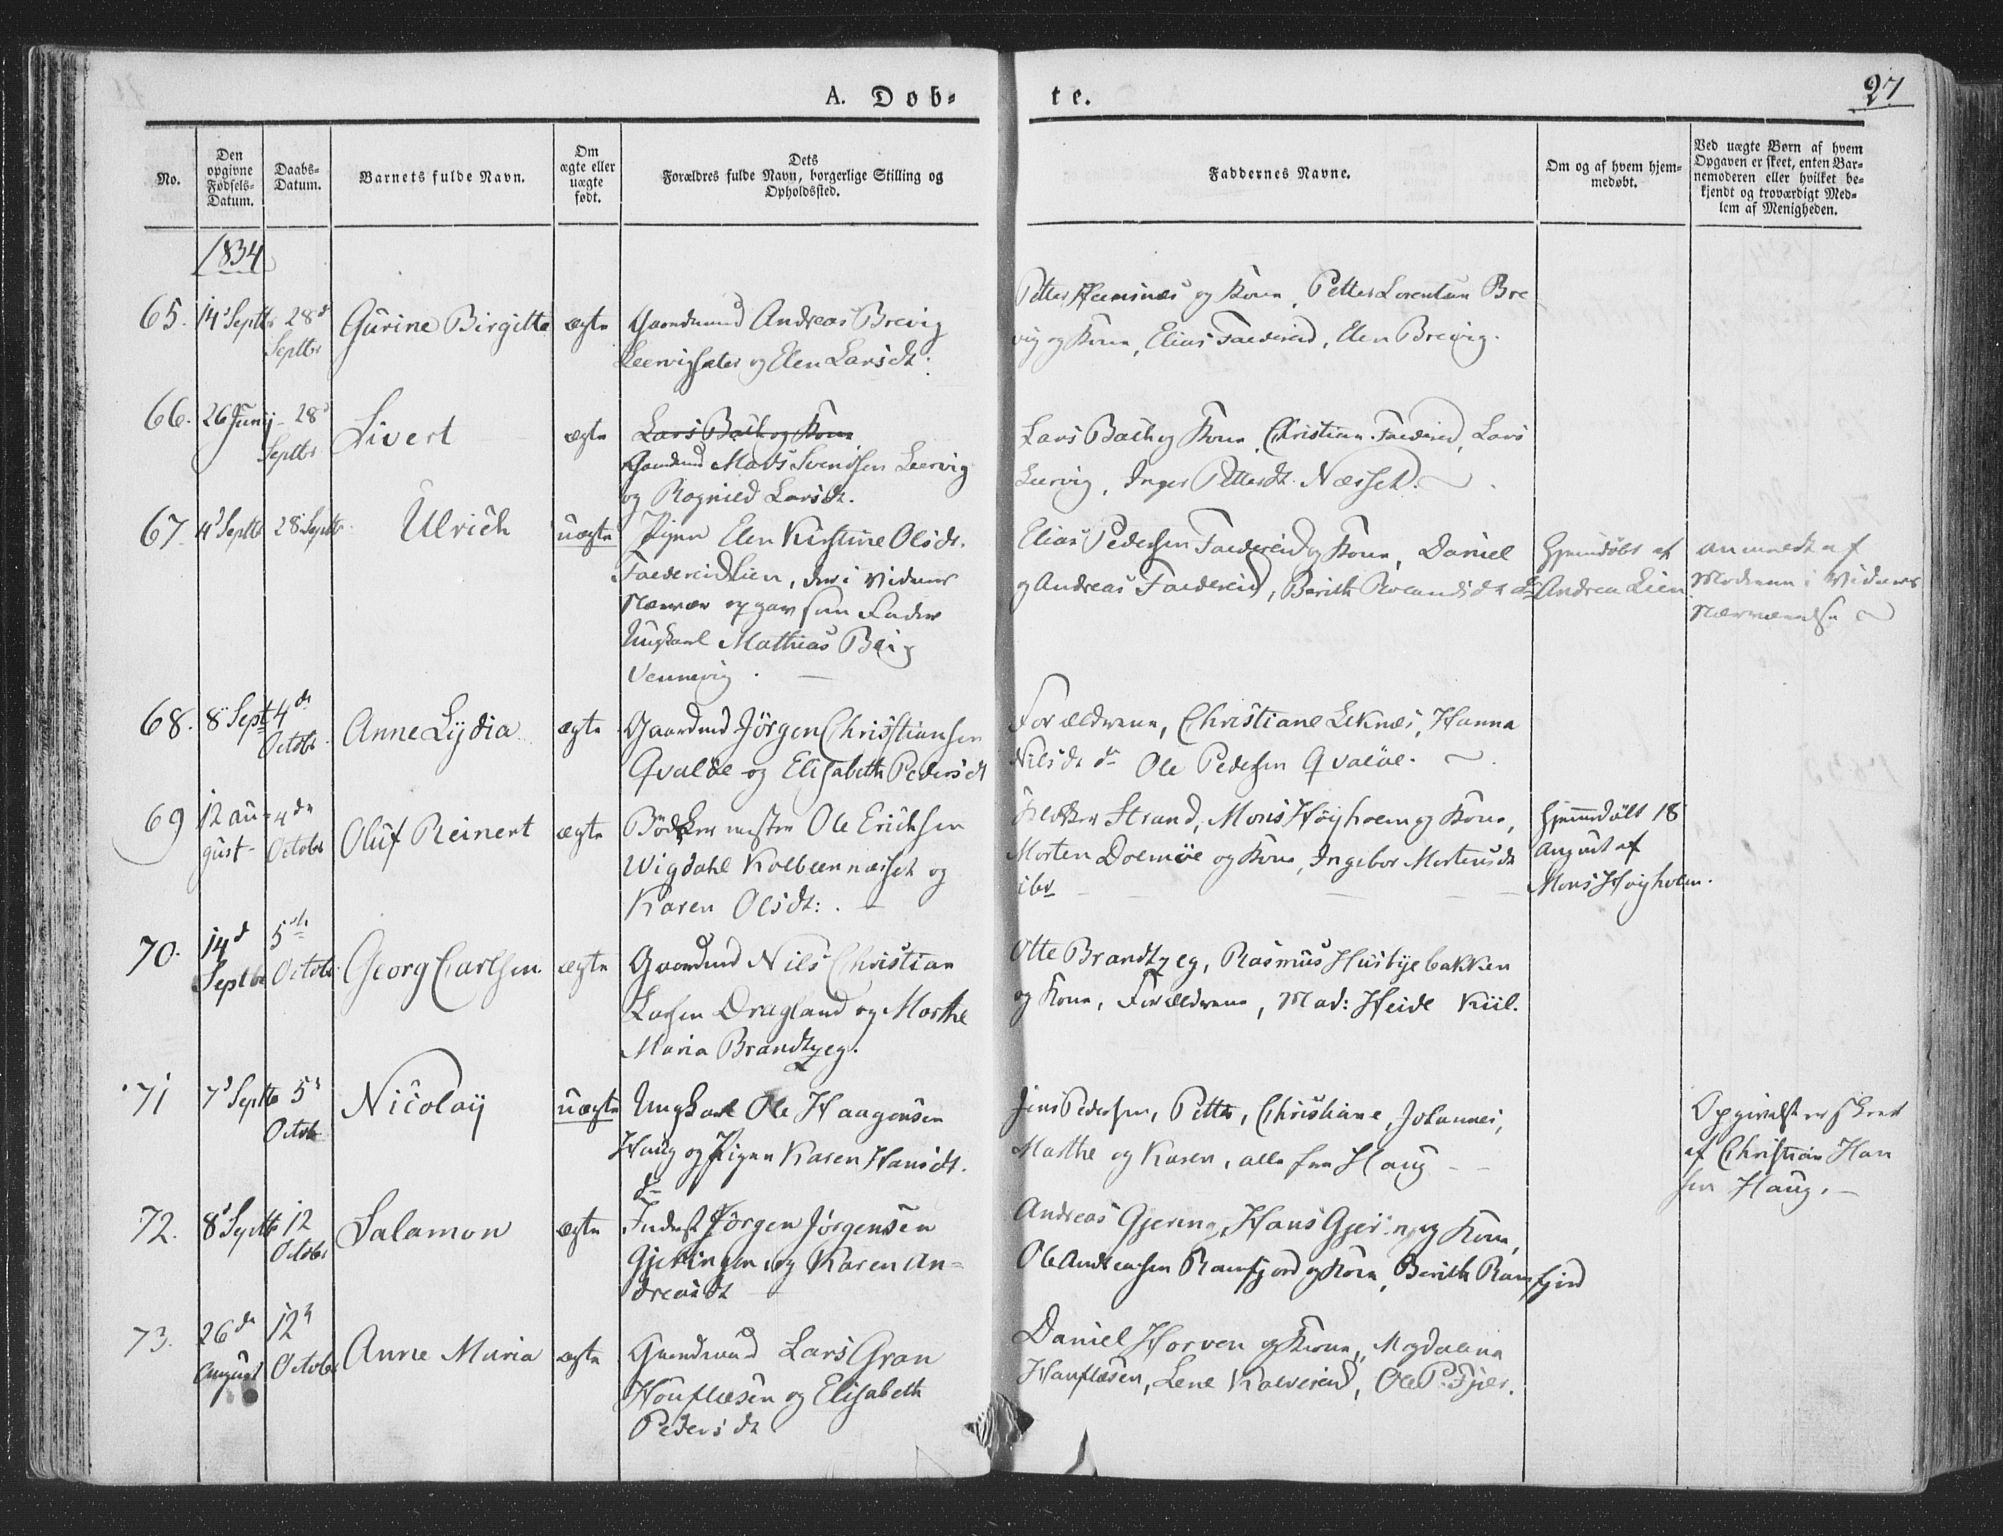 A. Døb-
te.
27
No.
Den opgivne Fødsels-Datum.
Daabs-Datum.
Barnets fulde Navn.
Om ægte eller uægte født.
Dets Forældres fulde Navn, borgerlige Stilling og Opholdssted.
Faddernes Navne.
Om og af hvem hjemmedøbt.
Ved uægte Børn af hvem Opgaven er skeet, enten Barnemoderen eller hvilket bekjendt og troværdigt Medlem af Menigheden.
1834
65. 14d Septbr 28d Septbr Gurine Birgitte ægte Gaardmand Andreas Brevig
og Elen Larsdt.
Petter og Kone, Petter Lorentsen Bre
vig og Kone, Elias Foldereid, Elen Brevig.
66. 26 Junij 28d Septbr Sivert ægte
Lars Bach og Kone
Gaardmd Mads Svendsen Leervig
og Ragnild Larsdt.
Lars Bach og Kone, Christian Foldereid, Lars
Leervig, Inger Pettersdt Næsset.
67. 4d Septbr 28 Septbr. Ulrich uægte
Pigen Elen Kirstine Olsdt.
Foldereidlien, der i Vidners
Nærvær opgav som Fader
Ungkarl Mathias Berg
Vennevig.
Elias Pedersen Foldereid og Kone, Daniel
og Andreas Foldereid, Berith Rolandsdt do
Hjemdøbt af
Andrea Lien
Anmeldt af
Moderen i Vidners
Nærværelse
68. 8 Sept 4de Octobr. Anne Lydia ægte
Gaardmd Jørgen Christiansen
Qvaløe og Elisabeth Pedersdt
Forældrene, Christiane Leknes, Hanna
Nilsdt do Ole Pedersen Qvaløe.
69 12 August 4de Octobr Oluf Reinert ægte
Bødkermester Ole Erichsen
Wigdahl Kolbeennæsset og
Karen Olsdt:
Strand, Mons Høyholm og Kone,
Morten Dolmøe og Kone, Ingebor Mortensdt
ibd
Hjemmedøbt 18
August af
Mons Høyholm.
70. 14d Septbr 5te Octobr Georg Carlsen ægte
Gaardmd Nils Christian
Larsen Dragland og Marthe
Maria Brandtzeg.
Otte Brandtzeg, Rasmus Husbyebakken
og Kone, Forældrene, Mad: Heide Kiil.
71 7d Septbr 5d Octobr Nicolaij uægte
Ungkarl Ole Haagensen
Haug og Pigen Karen Hansdt.
do
Jens Pedersen, Petter, Christiane, Johannes,
Marthe og Karen, alle fra Haug
Opgivelsen er skeet
af Christian Han
sen Haug.
72. 8d Septbr 12 Octobr Salamon ægte
Inderst Jørgen Jørgensen
Gjeringen og Karen An-
dreasdt
Andreas Gjering, Hans Gjering og Kone,
Ole Andreasen Ramfjord og Kone, Berith Ramfjord
73. 26de August 12te Octobr Anne Maria ægte
Gaardmand Lars Gran
Houflæsen og Elisabeth
Pedersdt
Daniel Horven og Kone, Magdalena
Houflæsen, Lene Kalvereid, Ole P. Fjær.